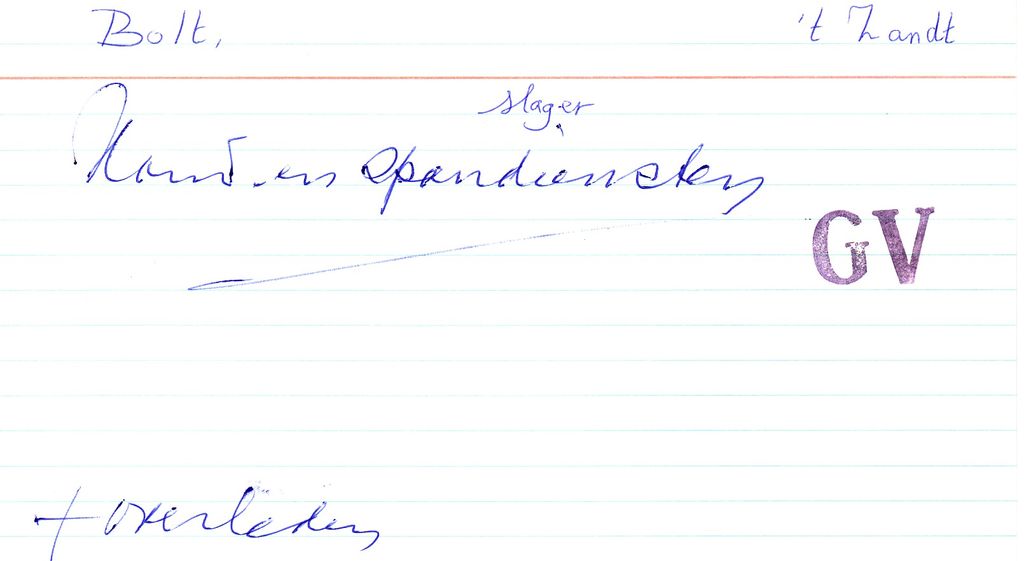 Bolt, 't Zandt
slager
Hand-en spandiensten
GV
+ overleden